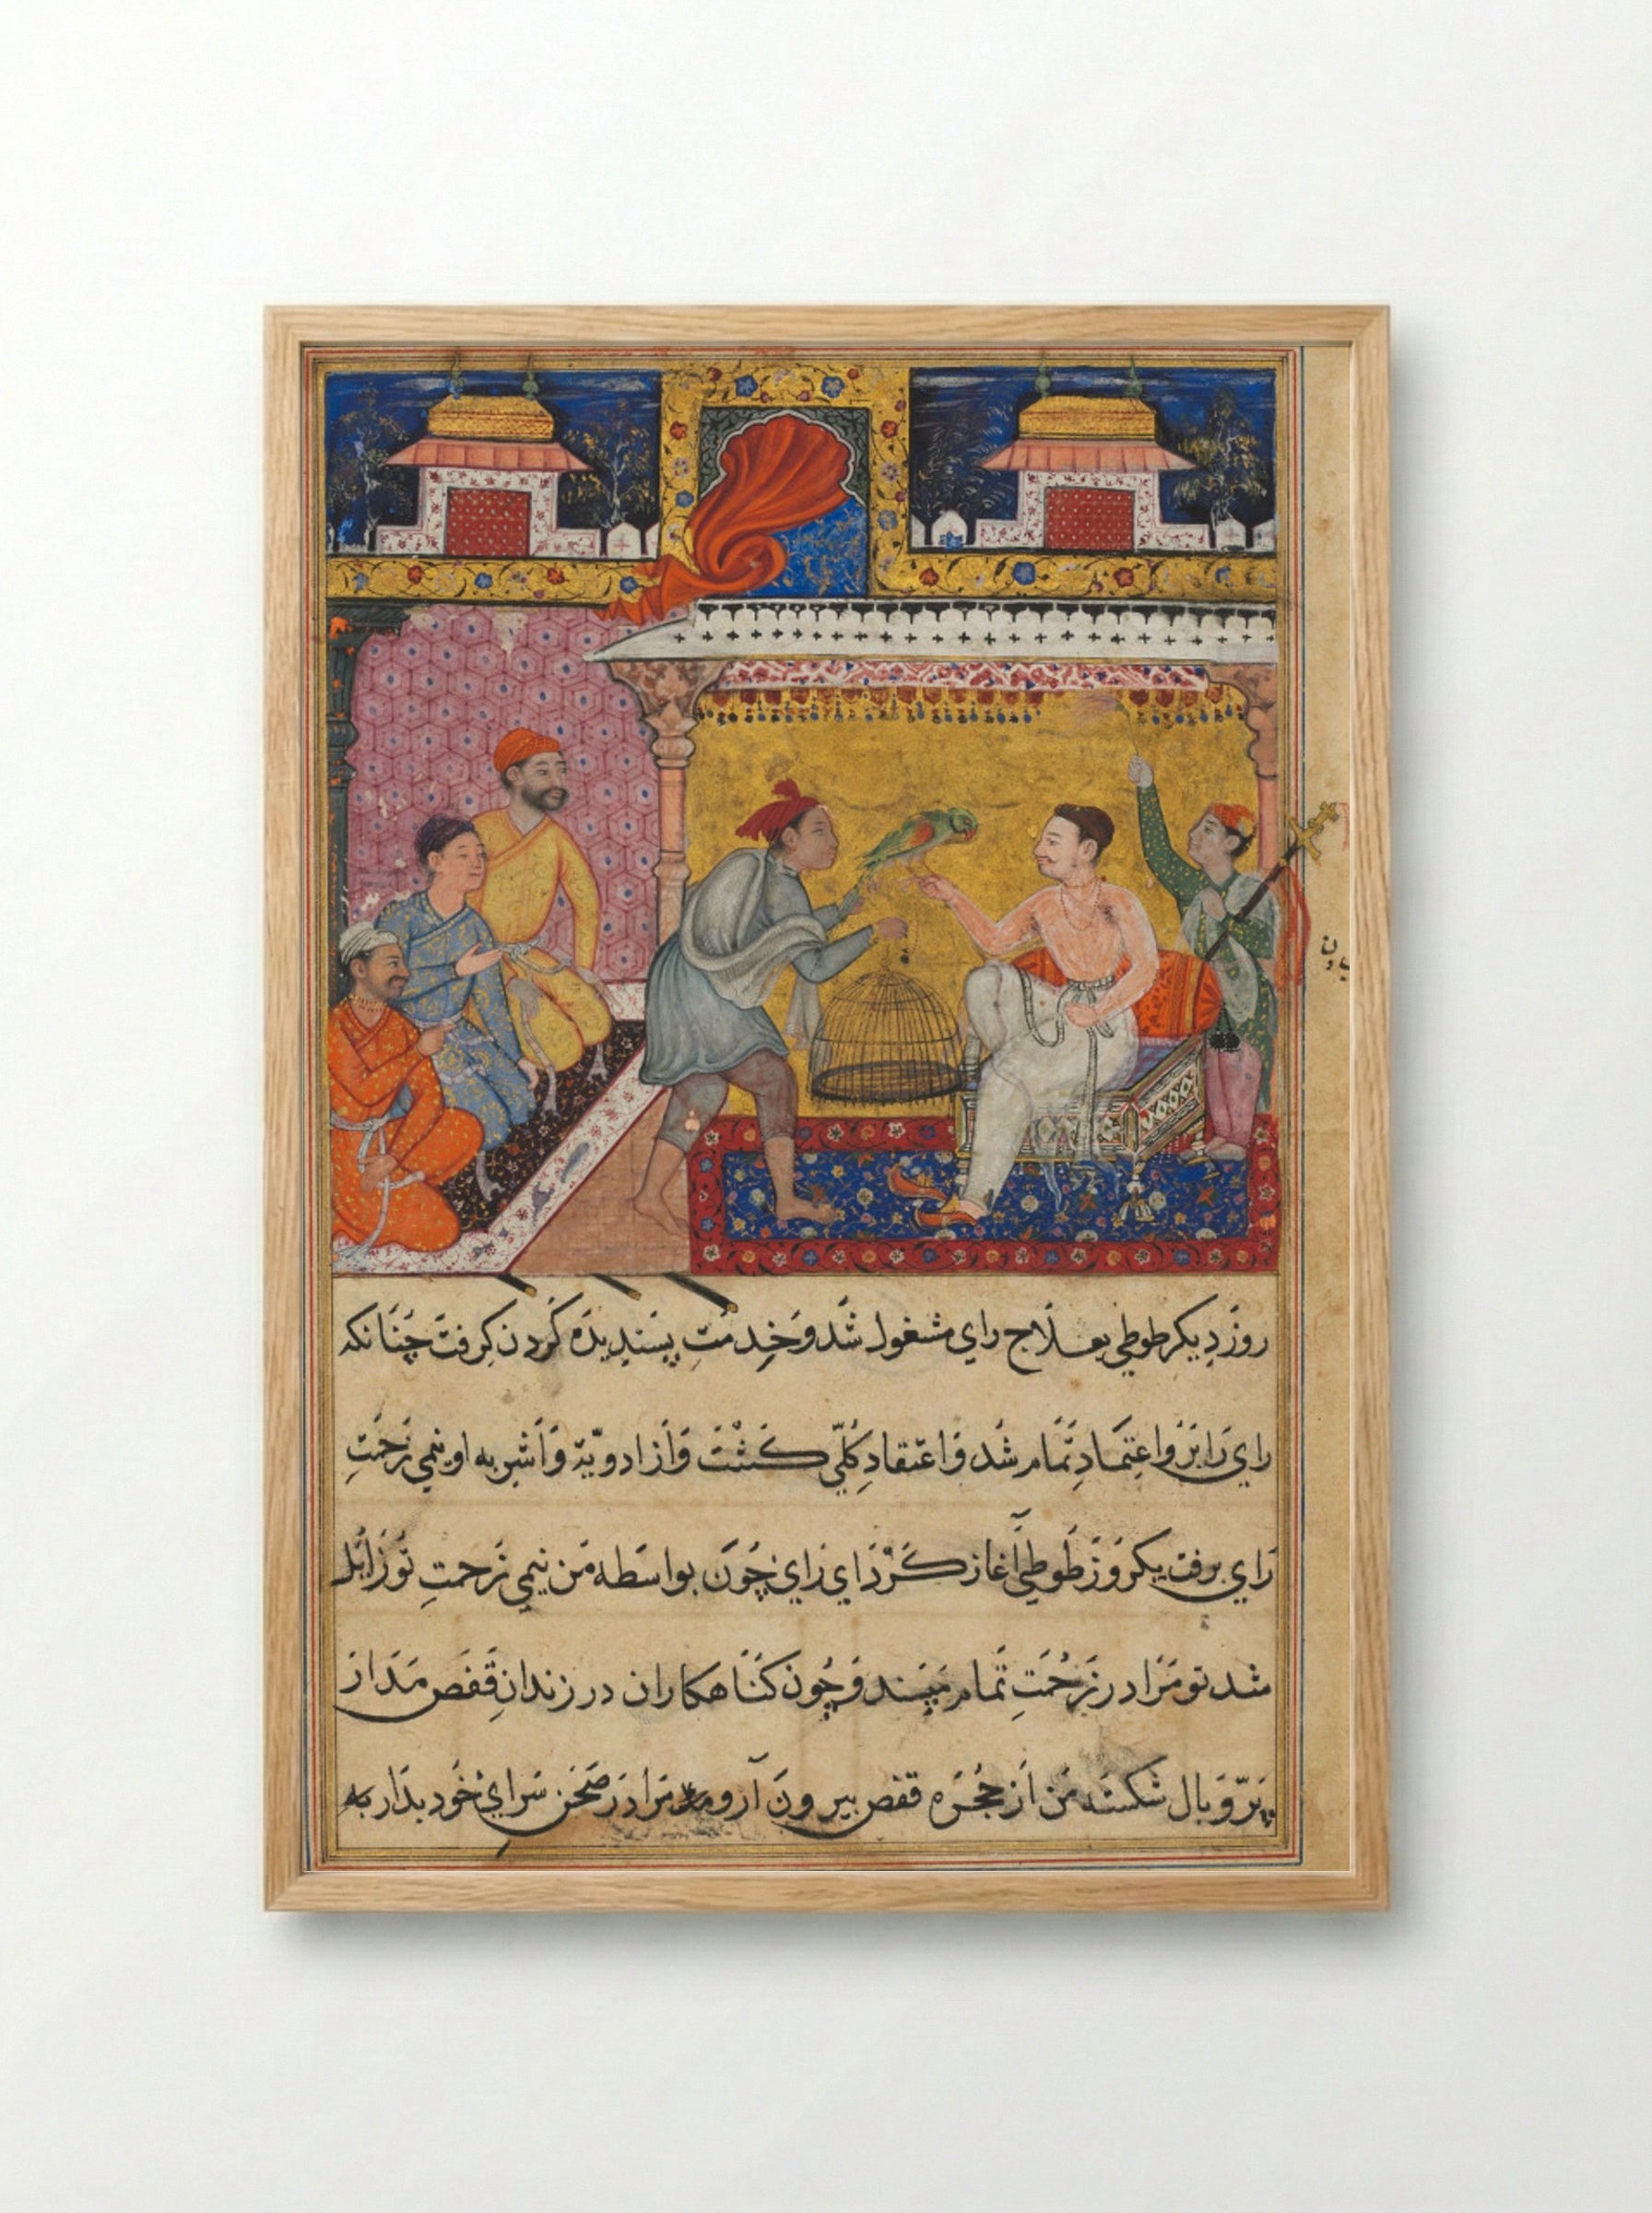 روز دیکر طوطي بعلاج راي مشغول شد و خدمت پسندیده کردن کرفت چنانکه
راي را بر و اعتماد تمام شد و اعتقاد کلّي کشت و از ادویّة و اشربه او نیمي زحمت
راي برفت یکروز طوطي آغاز کرد اي راي چون بواسطه من نیمي زحمت تو زایل
شد تو مرا در زحمت تمام مپسند و چون کناهکاران در زندان قفص مدار
پرّ و بال شکسته من از حجره قفص بیرون آر و مرا در صحن سراي خود بدار به